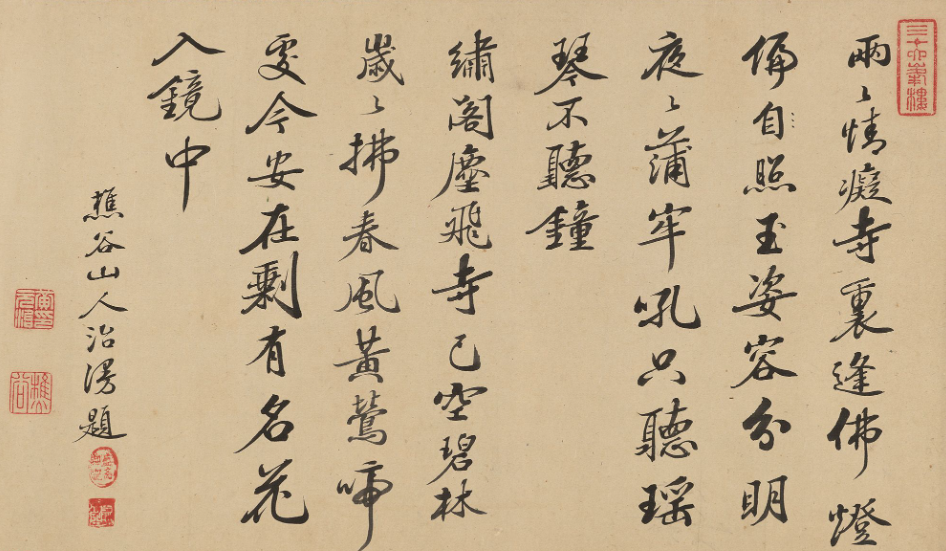 三十六峯樓
兩〻情癡寺裏逢佛燈
偏自照玉姿容分明
夜〻蒲牢吼只聽瑤
琴不聽鐘
繡閣塵飛寺已空碧林
歲〻拂春風黃鶯啼
處今安在剩有名花
入鏡中
樵谷山人治漫題